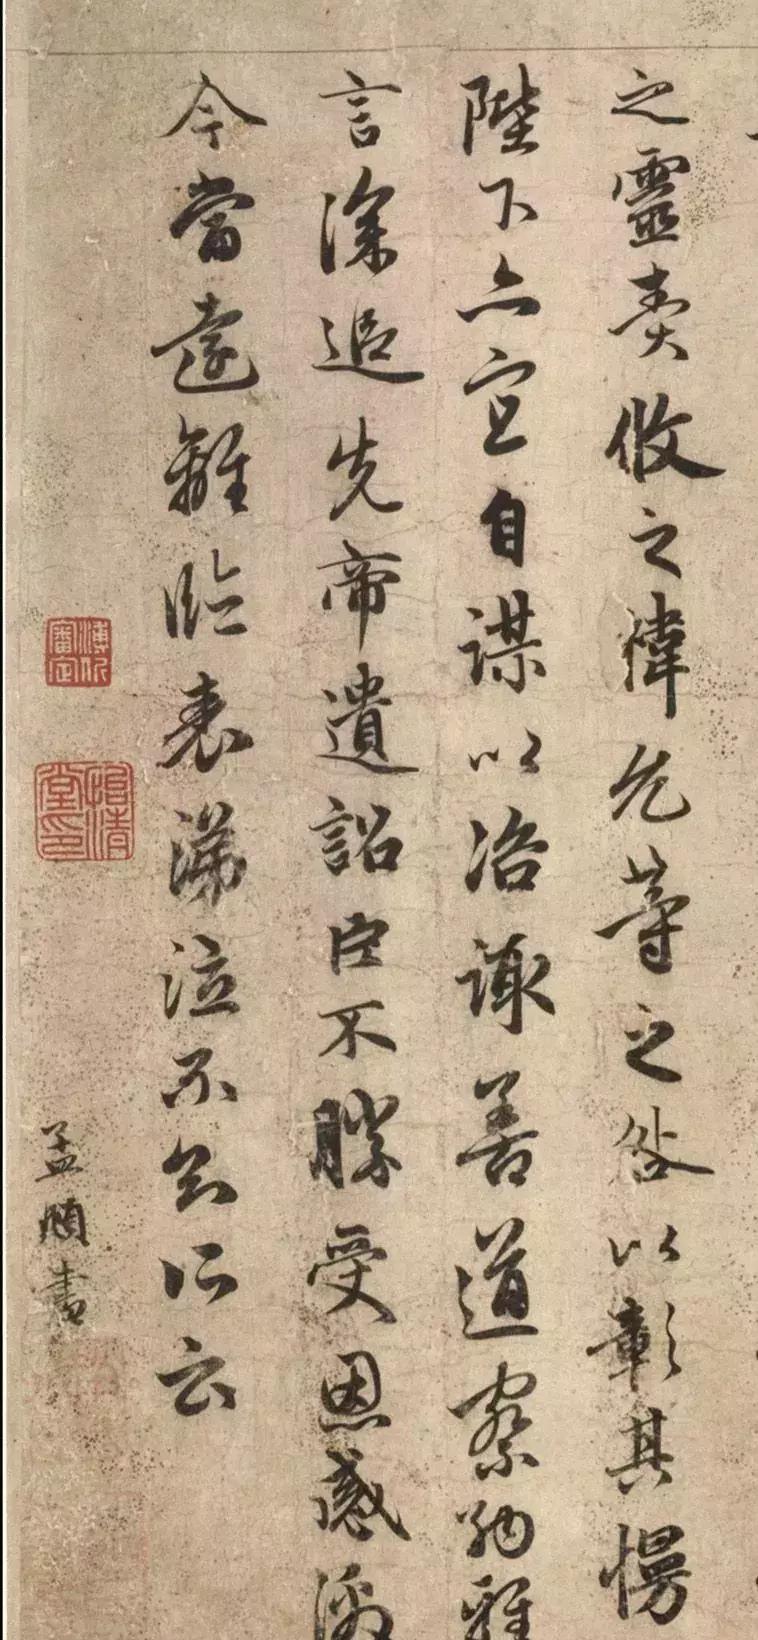 之靈責攸之禕允等之咎以彰其慢
陛下亦宜自謀以咨諏善道察納雅
言深追先帝遺詔臣不勝受恩感激
今當遠離臨表涕泣不知所云
孟頫書
審定
怡清堂印